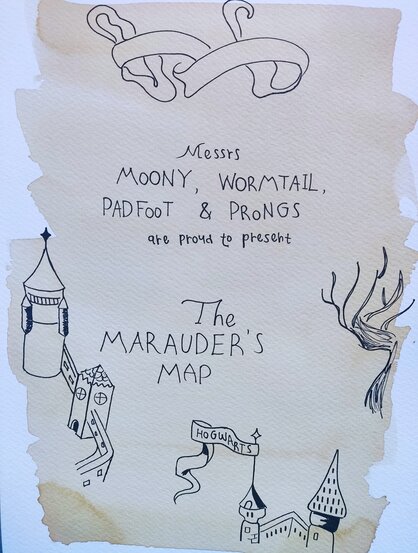 Messrs
MOONY, WORMTAIL,
PADFOOT & PRONGS
are proud to present
The
MARAUDER'S
MAP
HOGWARTS